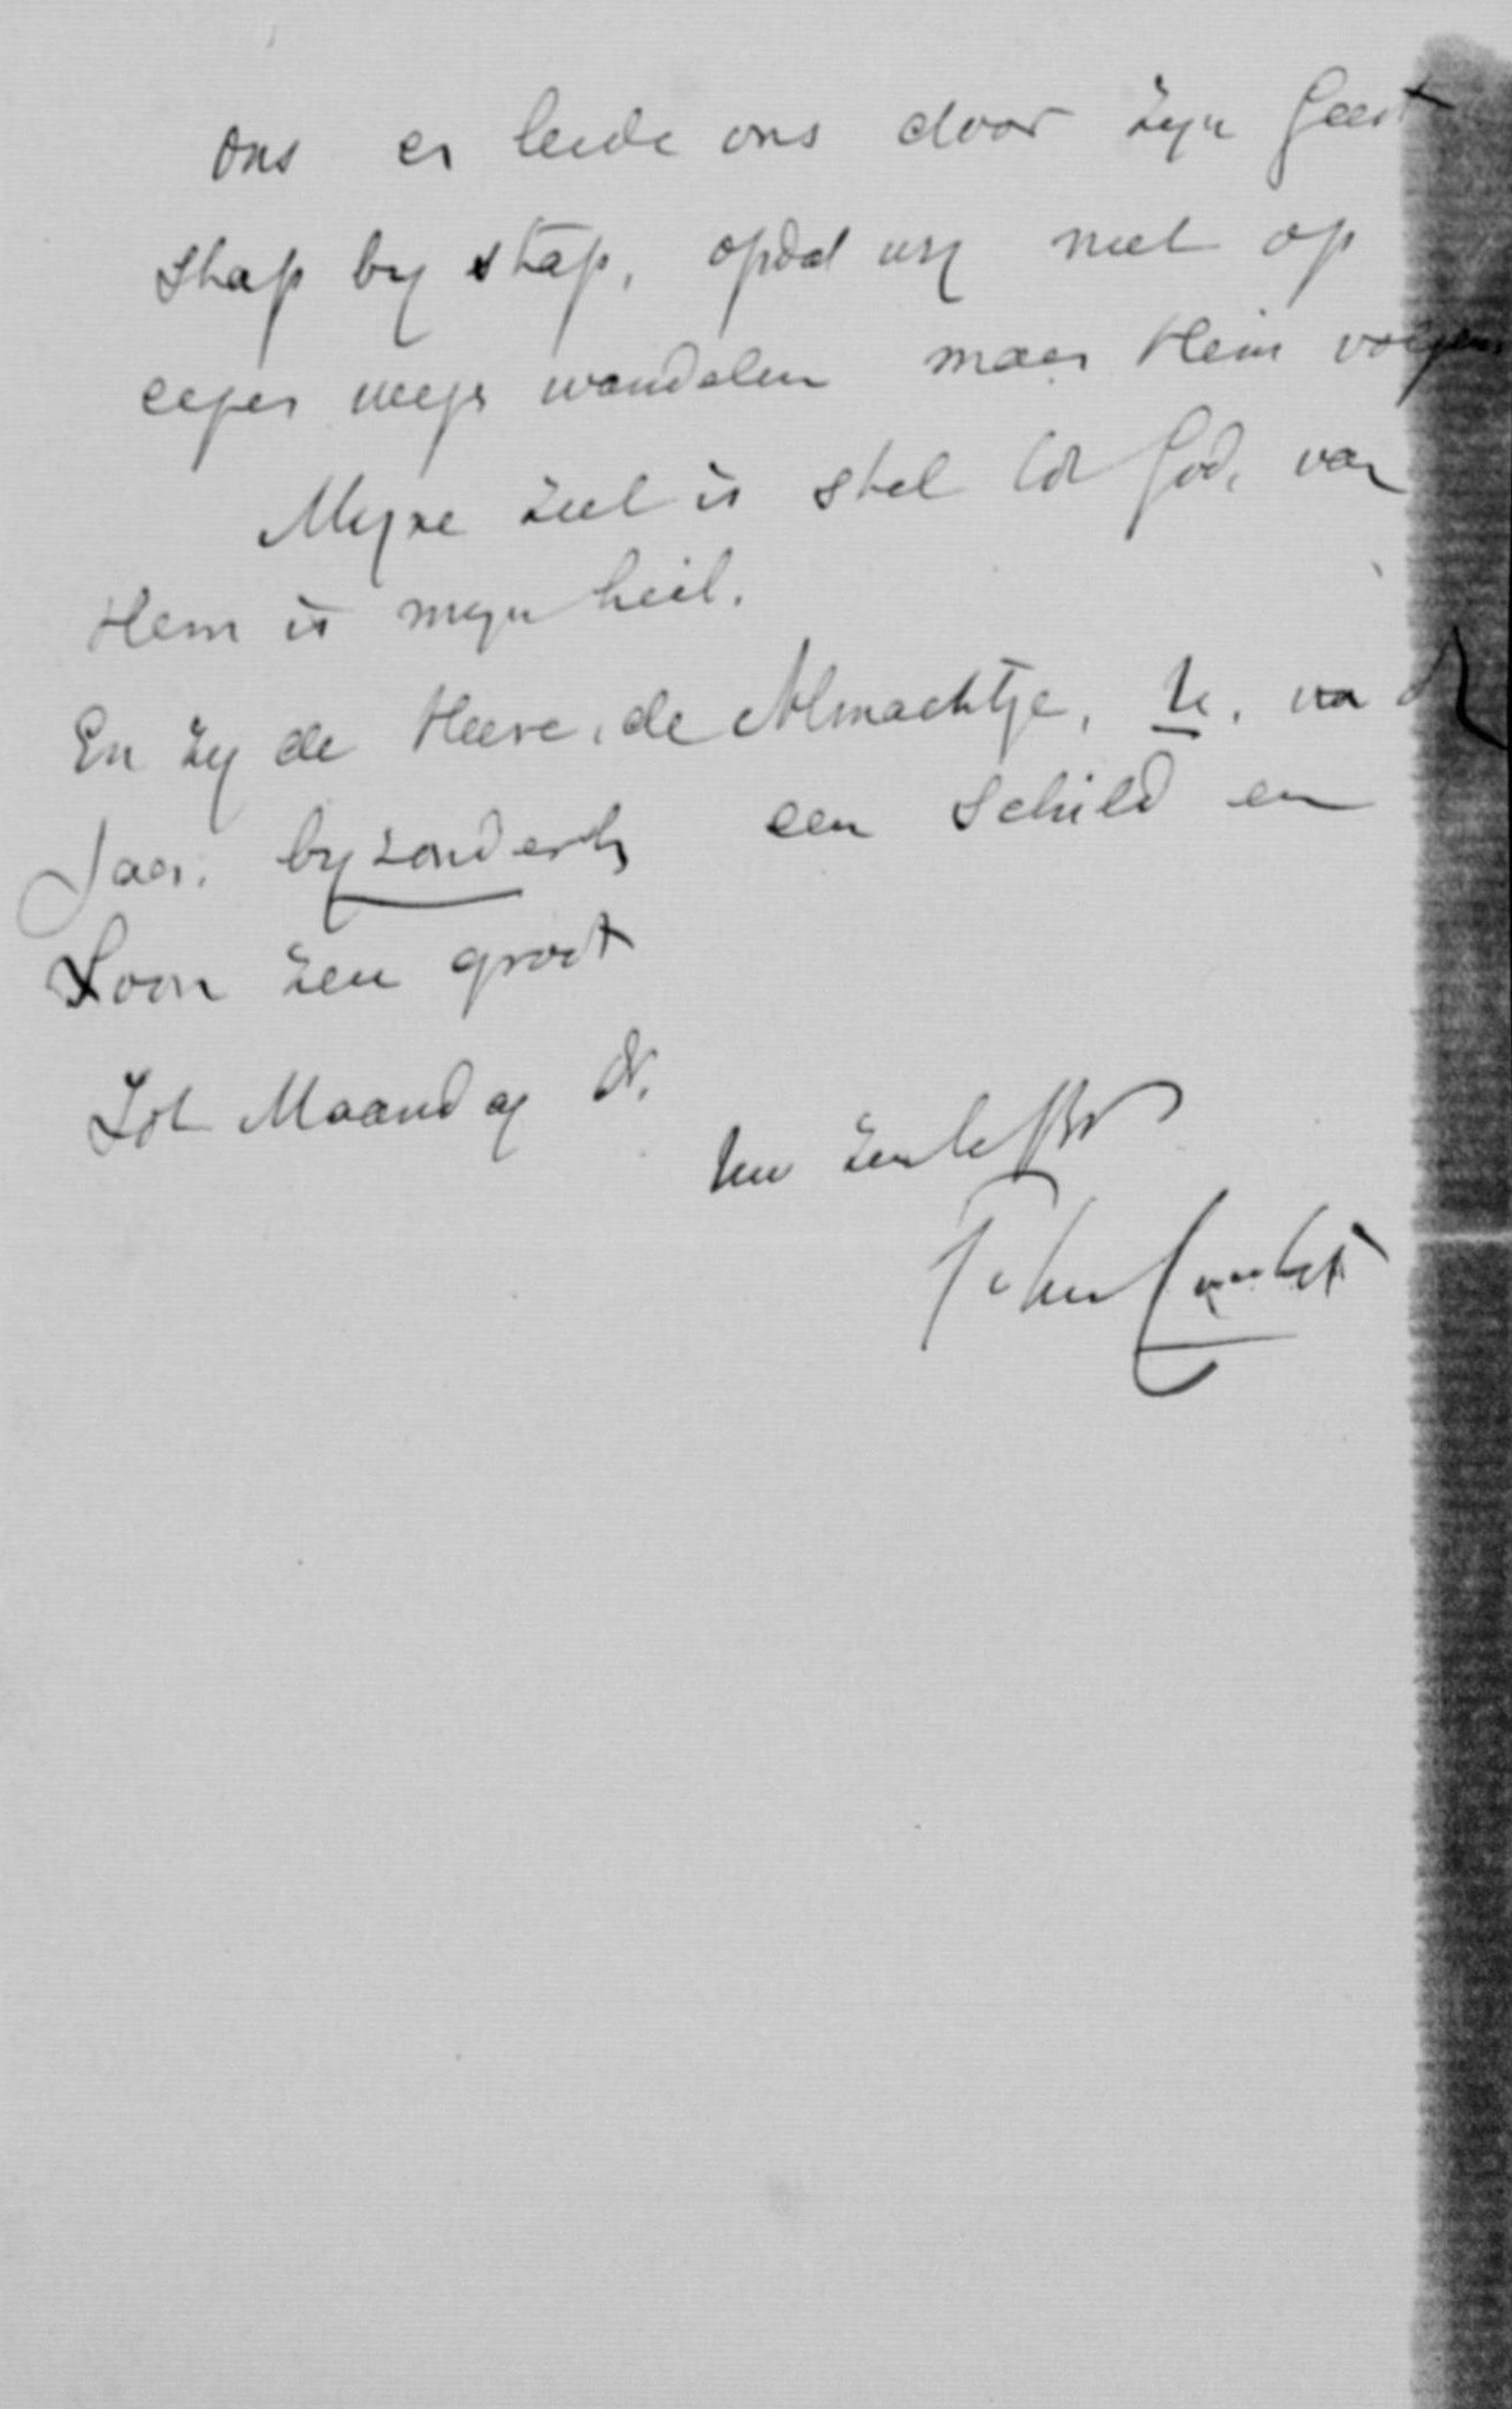 ons en leide ons door Zijn Geest
stap bij stap, opdat wij niet op
eigen wegen wandelen maar Hem volgen
Mijne ziel is stil tot God, van
Hem is mijn heil.
En zij de Heere, de Almachtige, U, van
Jaar. bijzonderlijk een schild en
Loon zeer groot
Tot Maandag